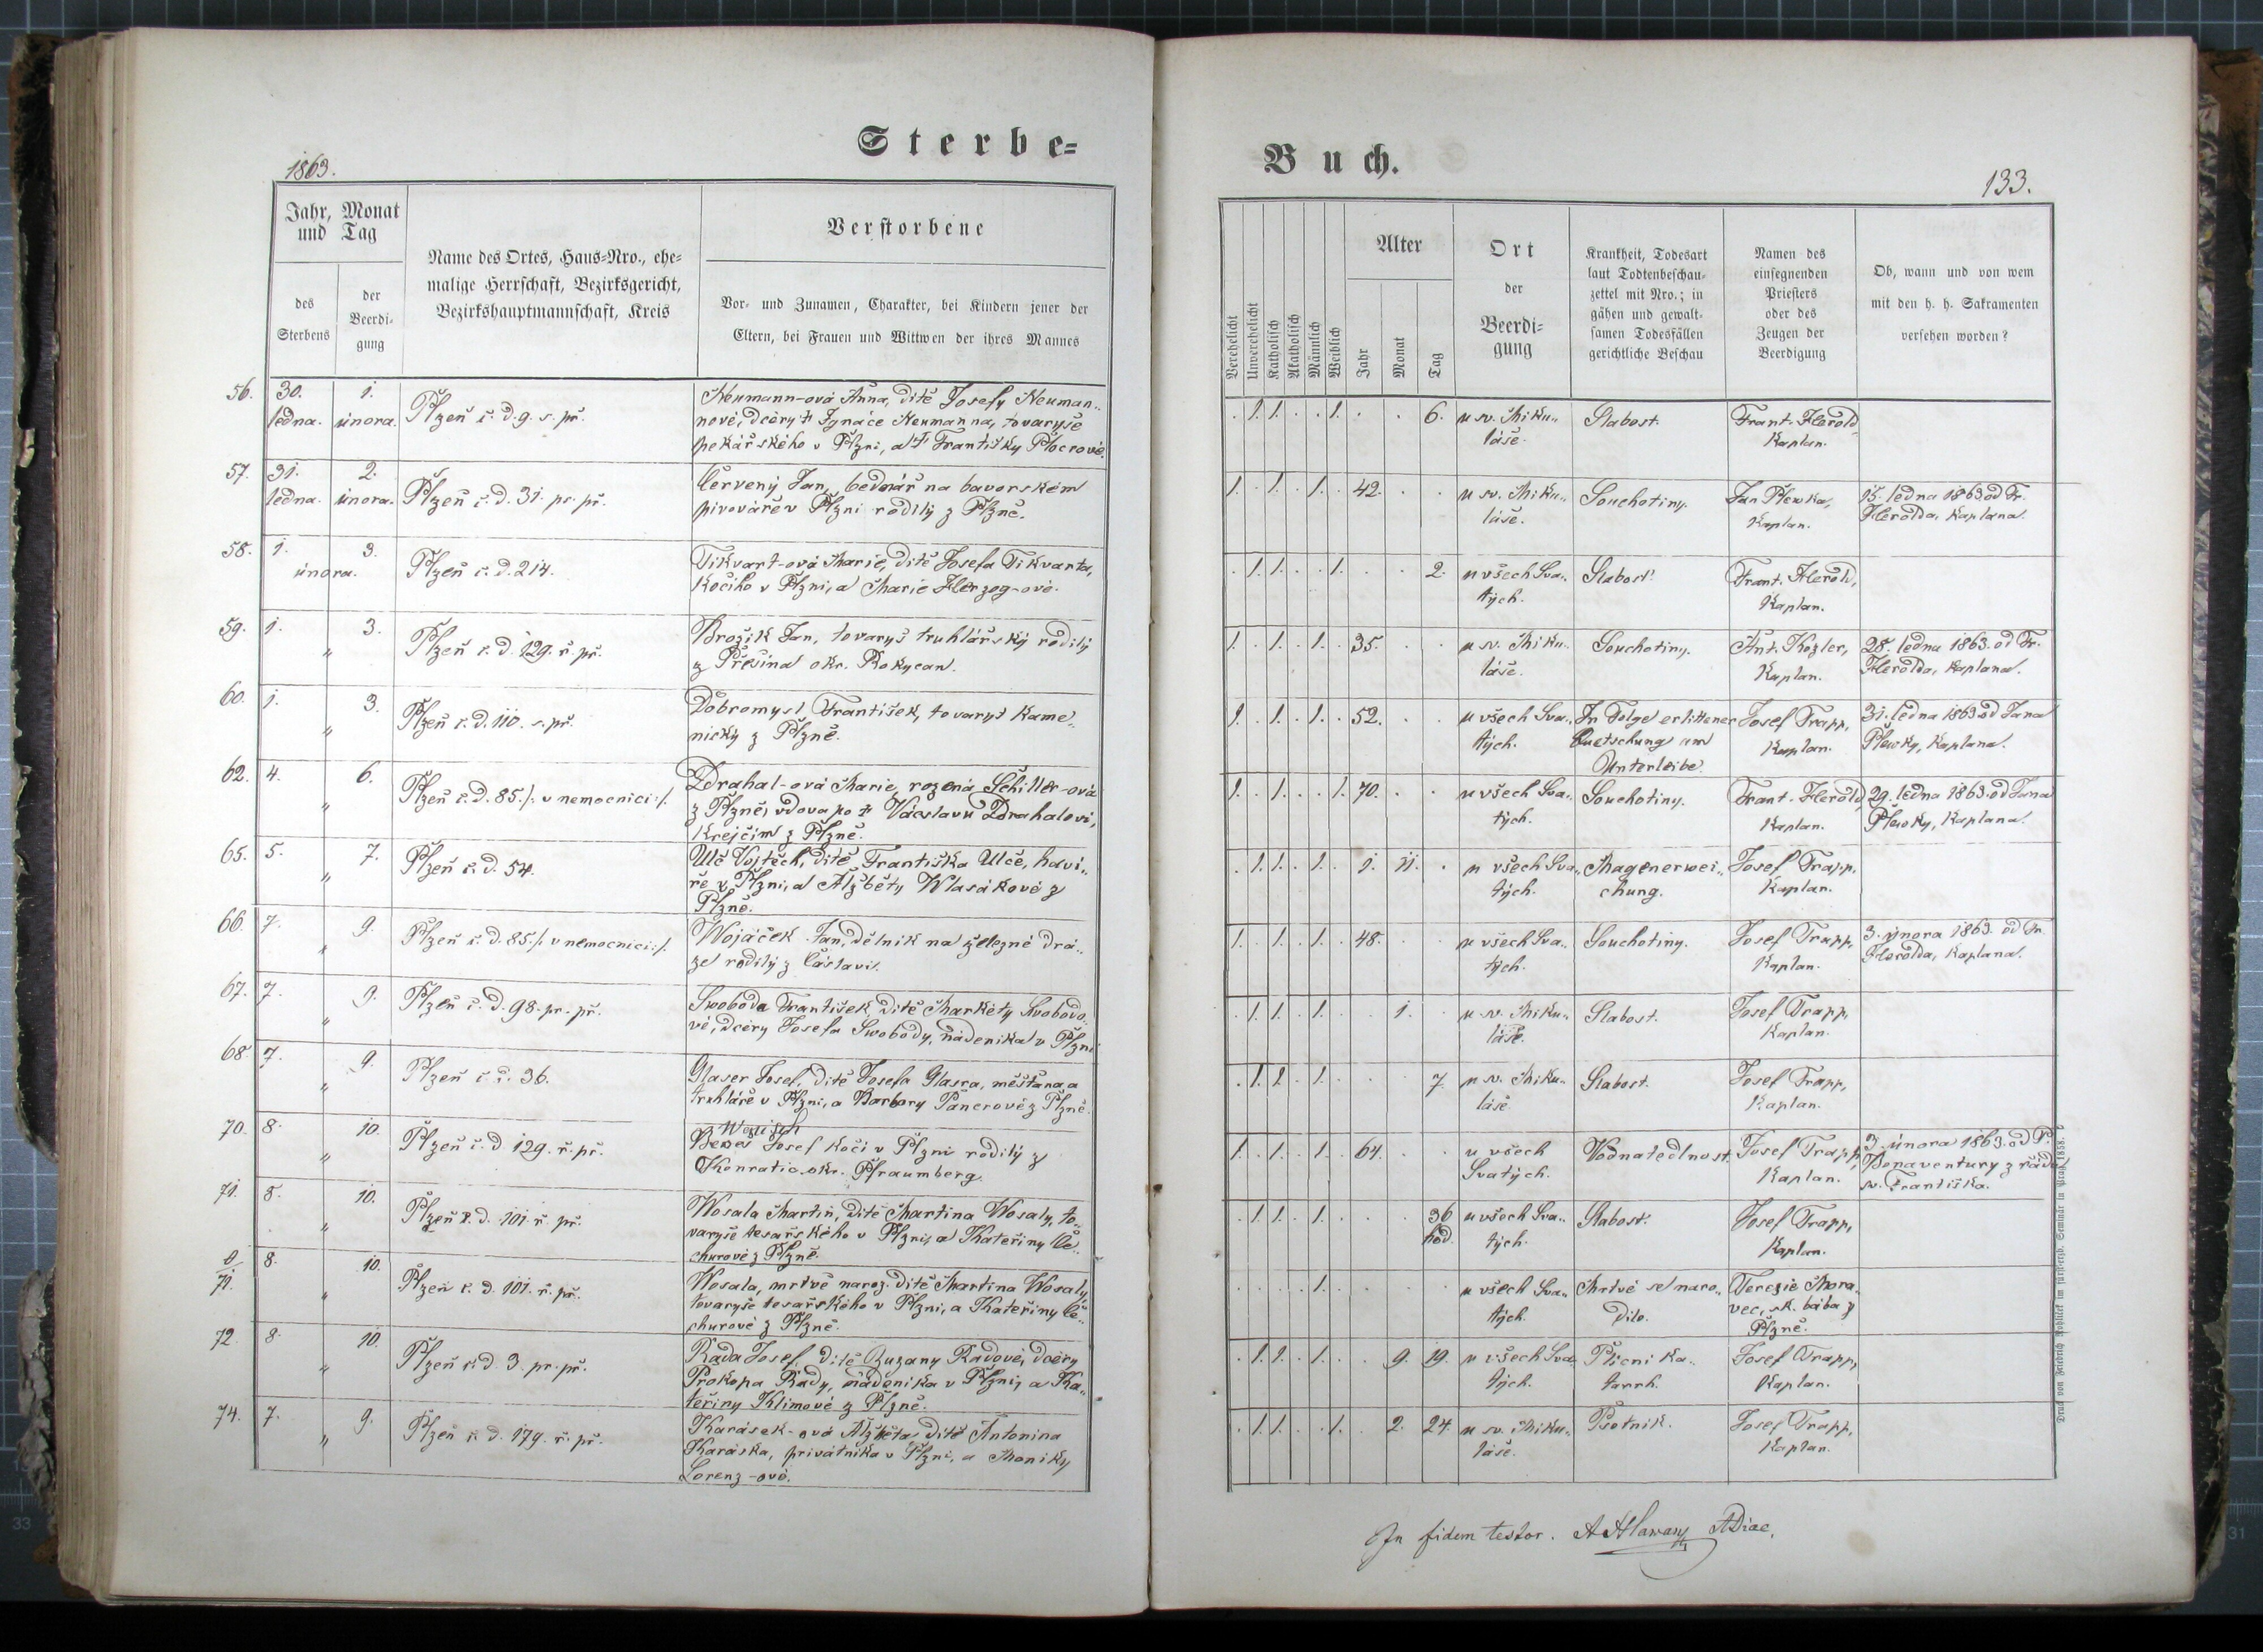 Sterbe-
Buch.
1863.
133.
Jahr, Monat
und Tag
des
Sterbens
der
Beerdi-
gung
Name des Ortes, Haus-Nro., ehe-
malige Herrschaft, Bezirksgericht,
Bezirkshauptmannschaft, Kreis
Verstorbene
Vor- und Zunamen, Charakter, bei Kindern jener der
Eltern, bei Frauen und Wittwen der ihres Mannes
Verehelicht
Unverehelicht
Katholisch
Akatholisch
Männlich
Weiblich
Alter
Jahr
Monat
Tag
Ort
der
Beerdi-
gung
Krankheit, Todesart
laut Todtenbeschau-
zettel mit Nro.; in
gähen und gewalt-
samen Todesfällen
gerichtliche Beschau
Namen des
einsegnenden
Priesters
oder des
Zeugen der
Beerdigung
Ob, wann und von wem
mit den h. h. Sakramenten
versehen worden?
56. 30. ledna. 1. února. Plzeň č. d. 9. s. př.
Neumann-ová Anna, dítě Josefy Neuman„
nové, dcery † Ignáce Neumanna, tovaryše
pekařského v Plzni, a † Františky Plocrové.
. 1. 1. . . 1. . . 6. u sv. Miku„
láše.
Slabost.
Frant. Herold
Kaplan.
57. 31. ledna. 2. února. Plzeň č. d. 31. pr. př.
Červený Jan, bednář na bavorském
pivováře v Plzni rodilý z Plzně.
1. . 1. . 1. . 42. . . u sv. Miku„
láše.
Souchotiny.
Jan Plewka,
Kaplan.
15. ledna 1863 od Fr.
Herolda, Kaplana.
58. 1. 3. února. Plzeň č. d. 214.
Tikvart-ová Marie, dítě Josefa Tikvarta,
kočího v Plzni, a Marie Herzog-ové.
. 1. 1. . . 1. . . 2. u všech Sva„
tých.
Slabost.
Frant. Herold,
Kaplan.
59. 1. „ 3. Plzeň č. d. 129. ř. př.
Brožik Jan, tovaryš truhlářský rodilý
z Přešína okr. Rokycan.
1. . 1. . 1. . 35. . . u sv. Miku„
láše.
Souchotiny.
Ant. Kozler,
Kaplan.
28. ledna 1863. od Fr.
Herolda, Kaplana.
60. 1. „ 3. Plzeň č. d. 110. s. př.
Dobromysl František, tovaryš kame„
nický z Plzně.
1. . 1. . 1. . 52. . . u všech Sva„
tých.
In Folge erlittener
Quetschung am
Unterleibe.
Josef Trapp,
Kaplan.
31. ledna 1863 od Jana
Plewky, Kaplana.
62. 4. „ 6. Plzeň č. d. 85. /: v nemocnici :/.
Zdrahal-ová Marie, rozená Schiller-ová
z Plzně, vdova po † Václavu Zdrahalovi,
krejčím z Plzně.
1. . 1. . . 1. 70. . . u všech Sva„
tých.
Souchotiny.
Frant. Herold,
Kaplan.
29. ledna 1863. od Jana
Plewky, Kaplana.
65. 5. „ 7. Plzeň č. d. 54.
Ulč Vojtěch, dítě Františka Ulče, haví„
ře v Plzni, a Alžběty Wlasákové z
Plzně.
. 1. 1. . 1. . 1. 11. . u všech Sva„
tých.
Magenerwei„
chung.
Josef Trapp,
Kaplan.
66. 7. „ 9. Plzeň č. d. 85. /: v nemocnici :/.
Wojáček Jan, dělník na železné drá„
ze rodilý z Čáslavi.
1. . 1. . 1. . 48. . . u všech Sva„
tých.
Souchotiny.
Josef Trapp,
Kaplan.
3. února 1863. od Fr.
Herolda, Kaplana.
67. 7. „ 9. Plzeň č. d. 98. pr. př.
Swoboda František, dítě Markéty Swobodo„
vé, dcery Josefa Swobody, nádeníka v Plzni
. 1. 1. . 1. . . 1. . u sv. Miku„
láše.
Slabost.
Josef Trapp,
Kaplan.
68. 7. „ 9. Plzeň č. d. 36.
Glaser Josef, dítě Josefa Glasra, měšťana a
truhláře v Plzni, a Barbory Pancrové z Plzně.
. 1. 1. . 1. . . . 7. u sv. Miku„
láše
Slabost.
Josef Trapp,
Kaplan.
70. 8. „ 10. Plzeň č. d 129. ř. př.
Josef kočí v Plzni rodilý z
Konratic okr. Pfraumberg.
1. . 1. . 1. . 64. . . u všech
Svatých.
Vodnatedlnost.
Josef Trapp,
Kaplan.
3. února 1863. od P.
Bonaventury z řádu
sv. Františka.
71. 8. „ 10. Plzeň č. d. 101. ř. př.
Wosala Martin, dítě Martina Wosaly, to„
varyše tesařského v Plzni, a Kateřiny Če„
churové z Plzně.
. 1. 1. . 1. . . . 36
hod.
u všech Sva„
tých.
Slabost.
Josef Trapp,
Kaplan.
0/71. 8. „ 10. Plzeň č. d. 101. ř. př.
Wosala, mrtvě naroz. dítě Martina Wosaly,
tovaryše tesařského v Plzni, a Kateřiny Če„
churové z Plzně.
. . . . 1. . . . . u všech Sva„
tých.
Mrtvé se naro„
dilo.
Terezie Mora„
vec, sk. bába z
Plzně.
72. 8. „ 10. Plzeň č. d. 3. pr. př.
Rada Josef, dítě Zuzany Radové, dcery
Prokopa Rady, nádeníka v Plzni, a Ka„
teřiny Klímové z Plzně.
. 1. 1. . 1. . . 9. 19. u všech Sva„
tých.
Plícní ka„
tarrh.
Josef Trapp,
Kaplan.
74. 7. „ 9. Plzeň č. d. 179. ř. př.
Karásek-ová Alžběta dítě Antonína
Karáska, privátníka v Plzni, a Moniky
Lorenz-ové.
. 1. 1. . . 1. . 2. 24. u sv. Miku„
láše.
Psotník.
Josef Trapp,
Kaplan.
In fidem testor. A Hlawan ADiac.